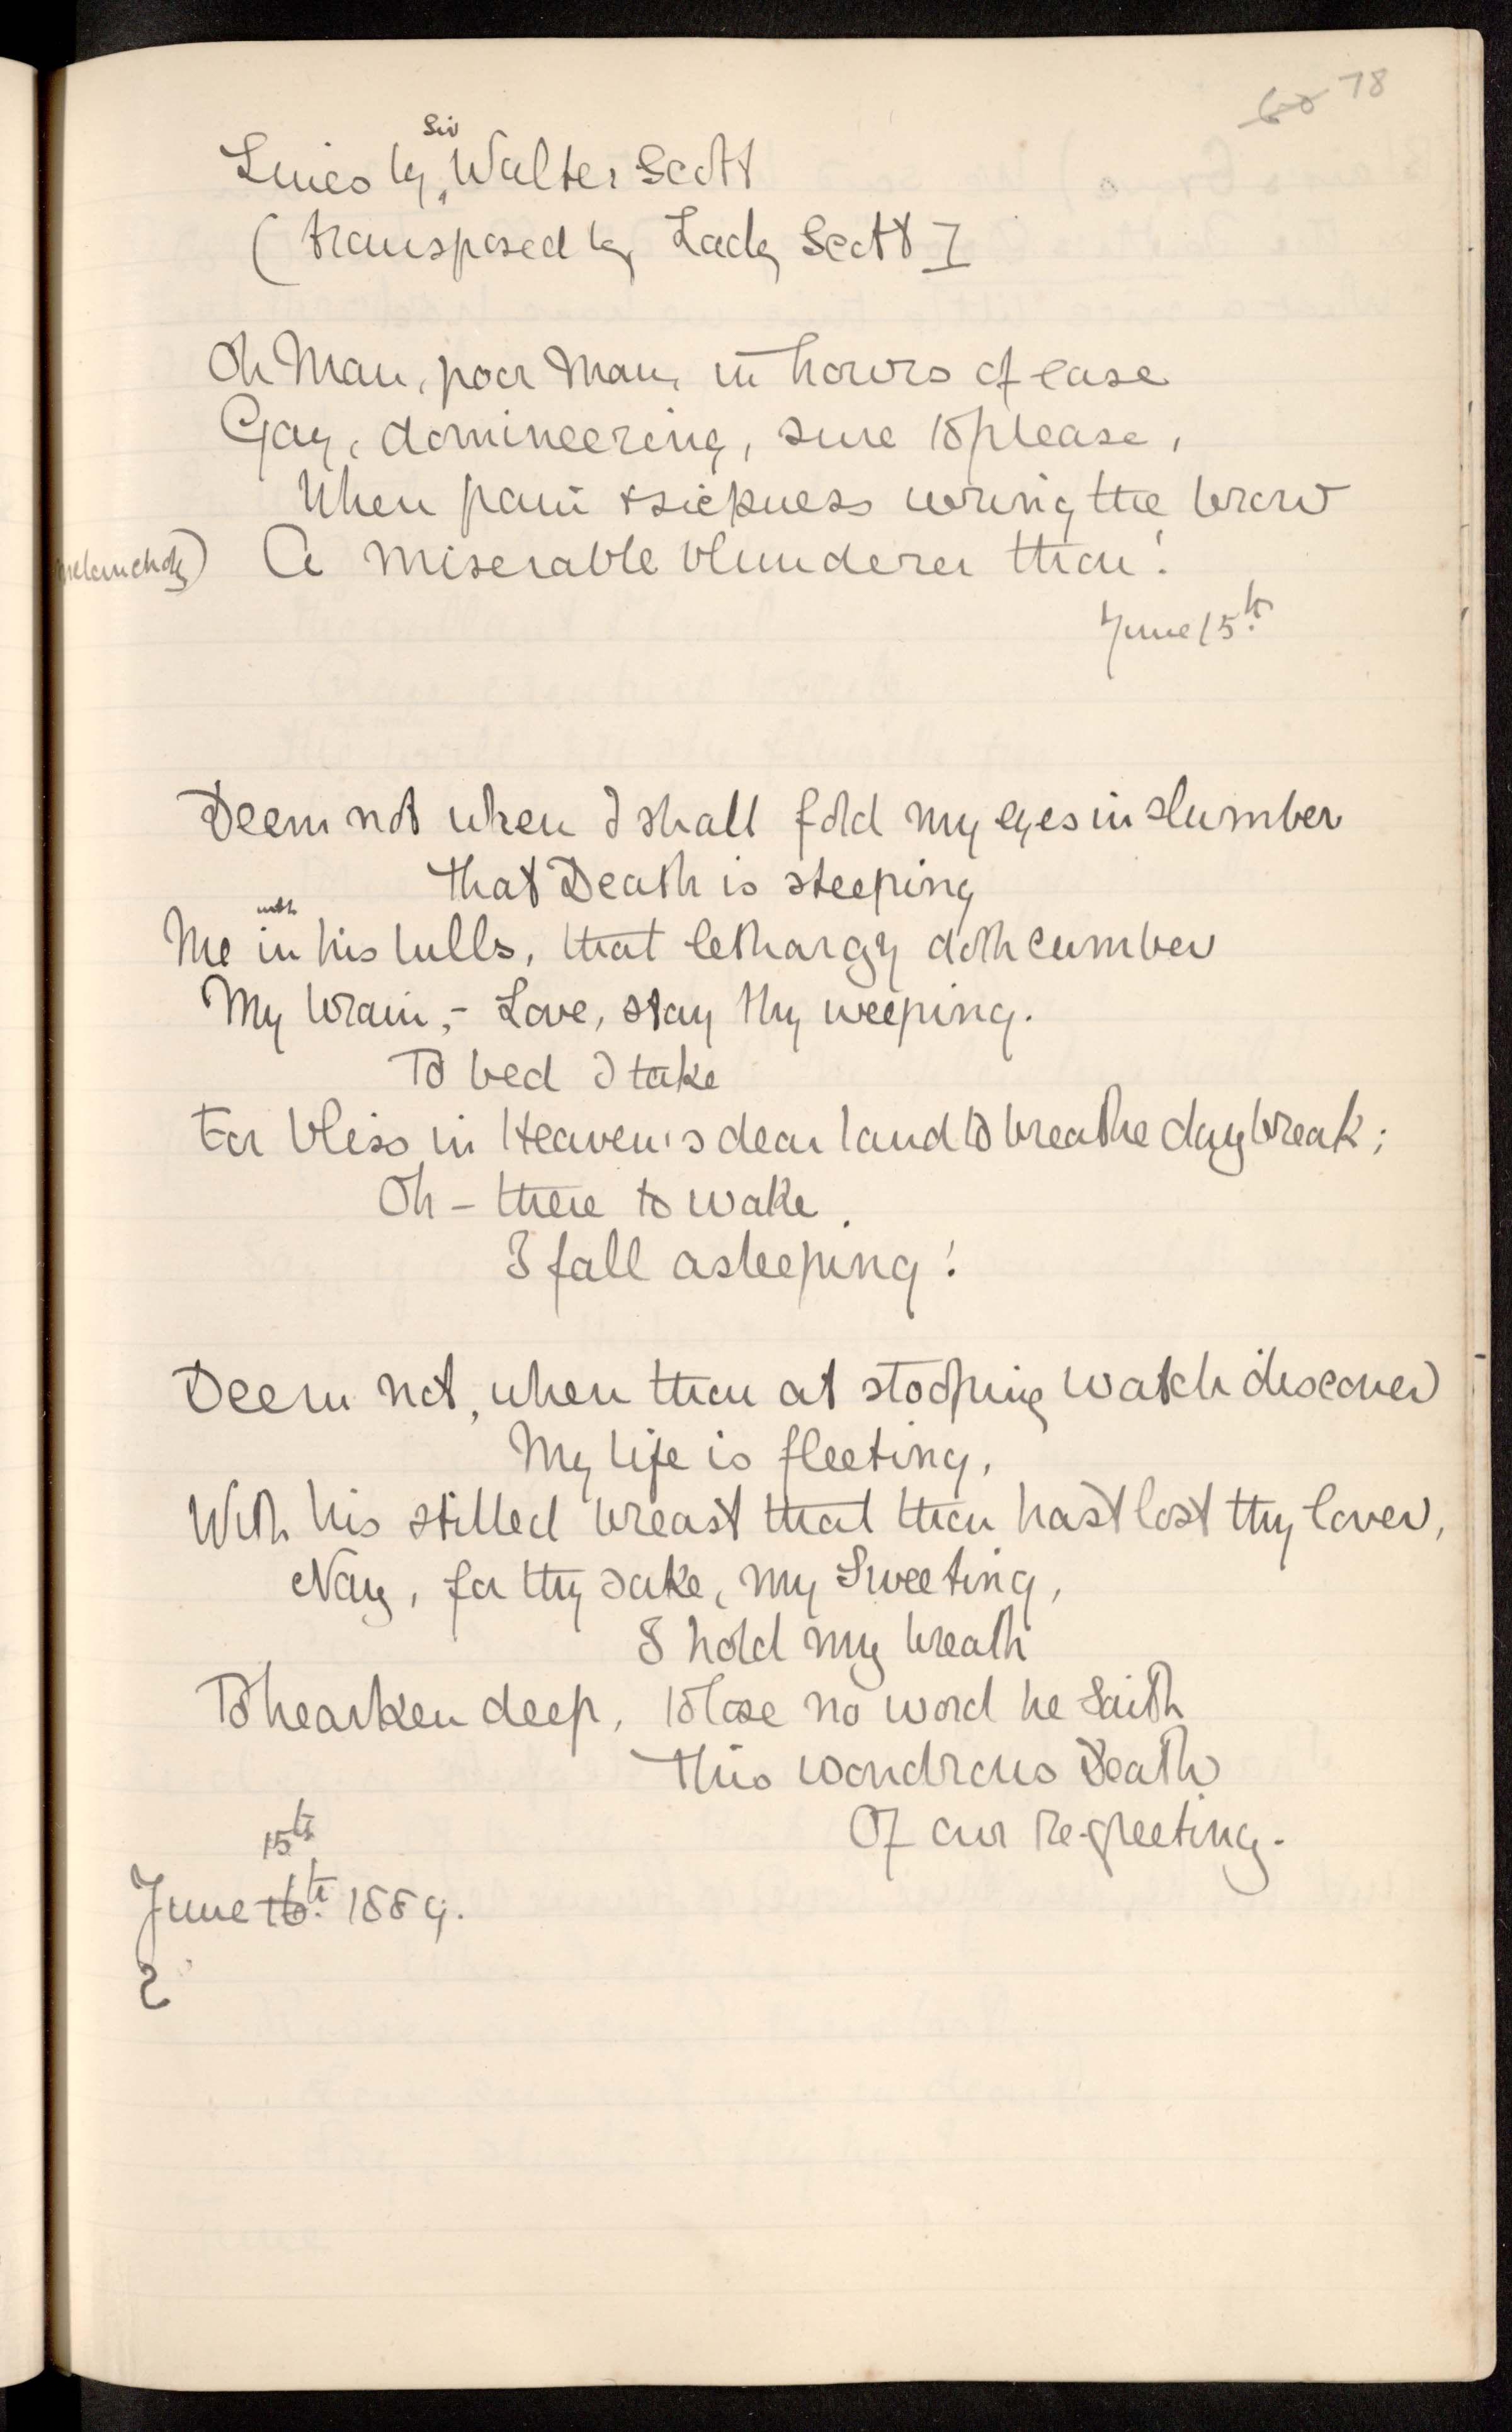 60 78
Lines by Sir Walter Scott
(transposed by Lady Scott I
Oh Man, poor Man, in hours of ease
Gay, domineering, sure to please,
When pain & sickness wring the brow
melancholy) A miserable blunderer thou!
June 15th
Deem not when I shall fold my eyes in slumber
That Death is steeping
with
Me in his lulls, that lethargy doth cumber
My brain,- Love, stay thy weeping.
To bed I take
For bliss in Heaven's dear land to breathe daybreak;
Oh - there to wake
I fall asleeping!
Deem not, when thou at stooping watch discover
My life is fleeting,
With his stilled breast that thou hast lost thy lover,
Nay, for thy sake, my Sweeting,
I hold my breath
To hearken deep, to lose no word he saith
This wondrous Death
Of our re-greeting.
15th
June 16th. 1889.